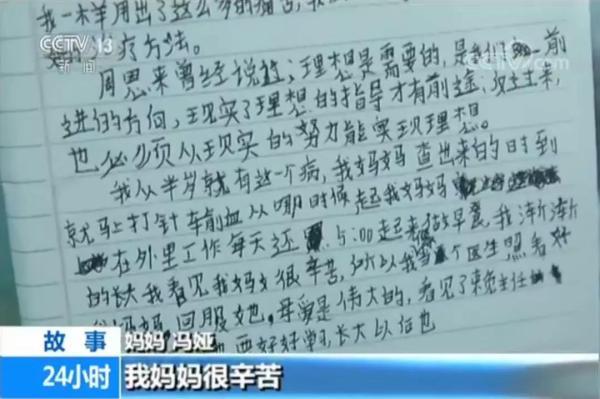 CCTV 13
新闻
CCTV.com
我一样用出了这么多的
疗方法。
周恩来曾经说过；理想是需要的，是我们前
进的方向，现实了理想的指导才有前途；反过来，
也必须从现实的努力能实现理想。
我从半岁就有这个病，我妈妈查出来的时到
就马上打针车前血从哪时候起我妈妈
在外里工作每天还 5:00起来做早晨，我渐渐
的长大我看见我妈女很辛苦，所以我当个医生照看好
妈妈，回服她，母爱是伟大的，看见了 主任
要好好学习，长大以后也
故事
妈妈 冯娅
24小时
我妈妈很辛苦